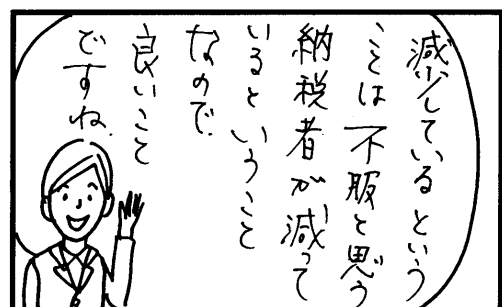 減少しているという
ことは不服と思う
納税者が減って
いるということ
なので、
良いこと
ですね。